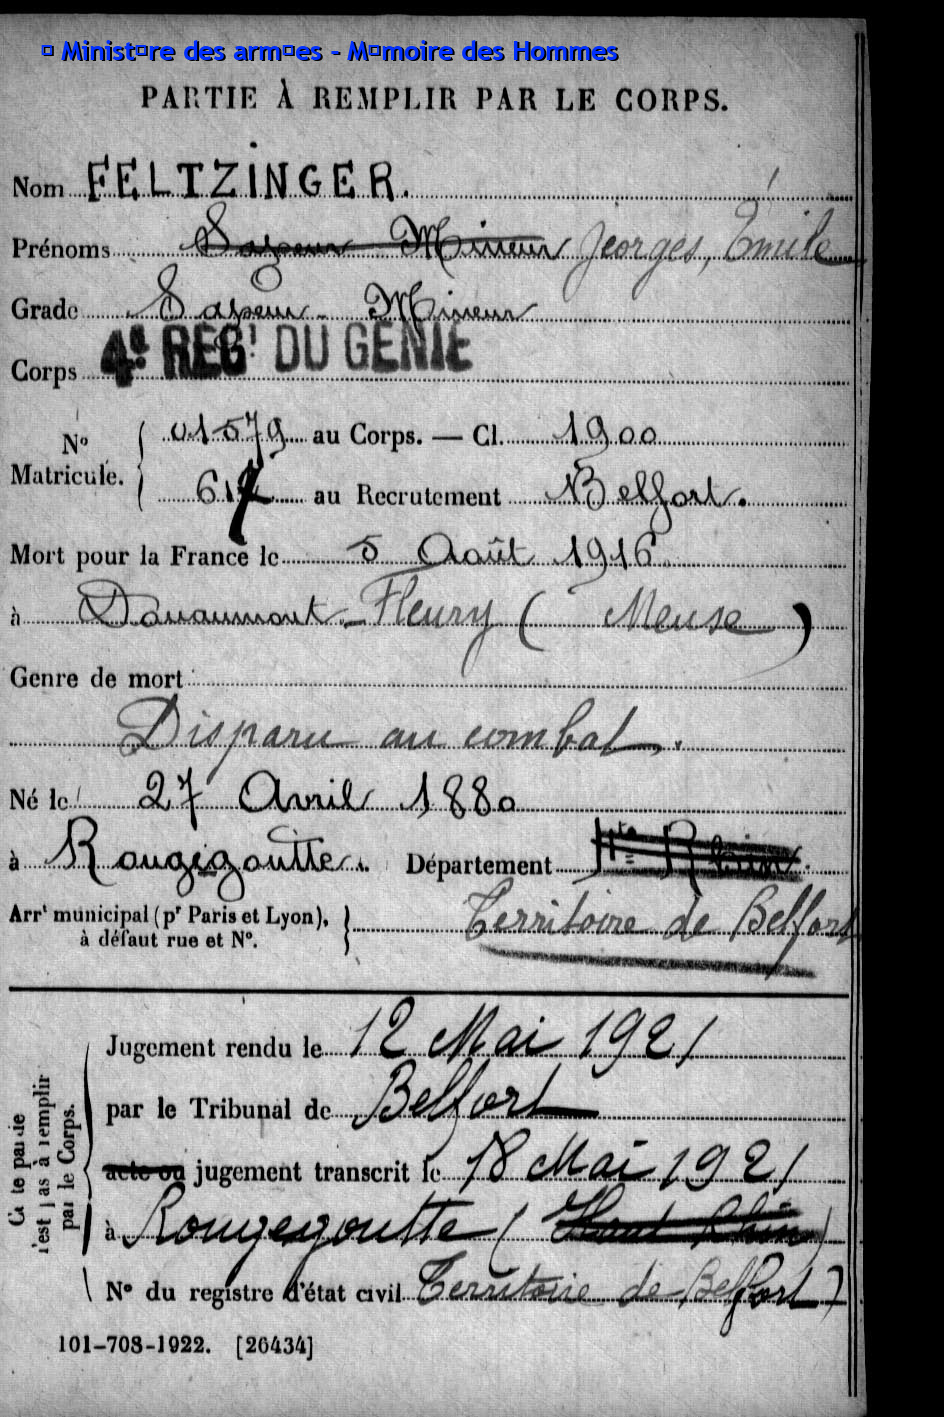 © Ministère des armées - Mémoire des Hommes
PARTIE À REMPLIR PAR LE CORPS.
Nom FELTZINGER.
Prénoms Sapeur Mineur Georges, Émile
Grade Sapeur-Mineur
Corps 4e REGt DU GENIE
No Matricule. 01579 au Corps. — Cl. 1900
617 au Recrutement Belfort.
Mort pour la France le 5 Août 1916
à Douaumont-Fleury (Meuse)
Genre de mort
Disparu au combat.
Né le 27 Avril 1880
à Rougegoutte. Département Hte Rhin
Arrt municipal (pr Paris et Lyon), à défaut rue et No. Territoire de Belfort
Cette partie n'est pas à remplir par le Corps.
Jugement rendu le 12 Mai 1921
par le Tribunal de Belfort
acte ou jugement transcrit le 18 Mai 1921
à Rougegoutte (Haut Rhin)
No du registre d'état civil Territoire de Belfort)
101-708-1922. [26434]